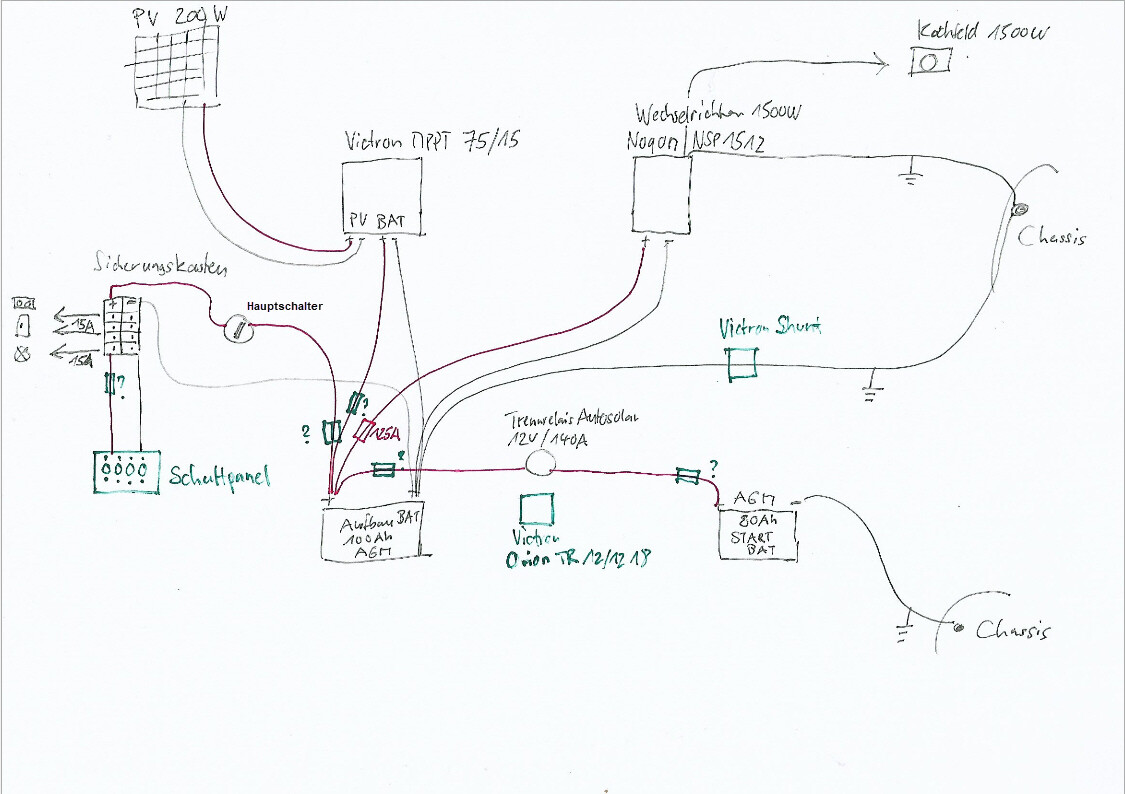 PV 200W
Kochfeld 1500W
Wechselrichter 1500W
Noqon NSP1512
Victron MPPT 75/15
PV BAT
+ - + -
+ -
Chassis
Sicherungskasten
Hauptschalter
+ -
15A
15A
Victron Shunt
?
?
?
125A
Trennrelais Autosolar
12V/140A
?
?
Schaltpanel
+ -
Aufbau BAT
100Ah
AGM
Victron
Orion TR 12/12 18
AGM
-
80Ah
START
BAT
Chassis